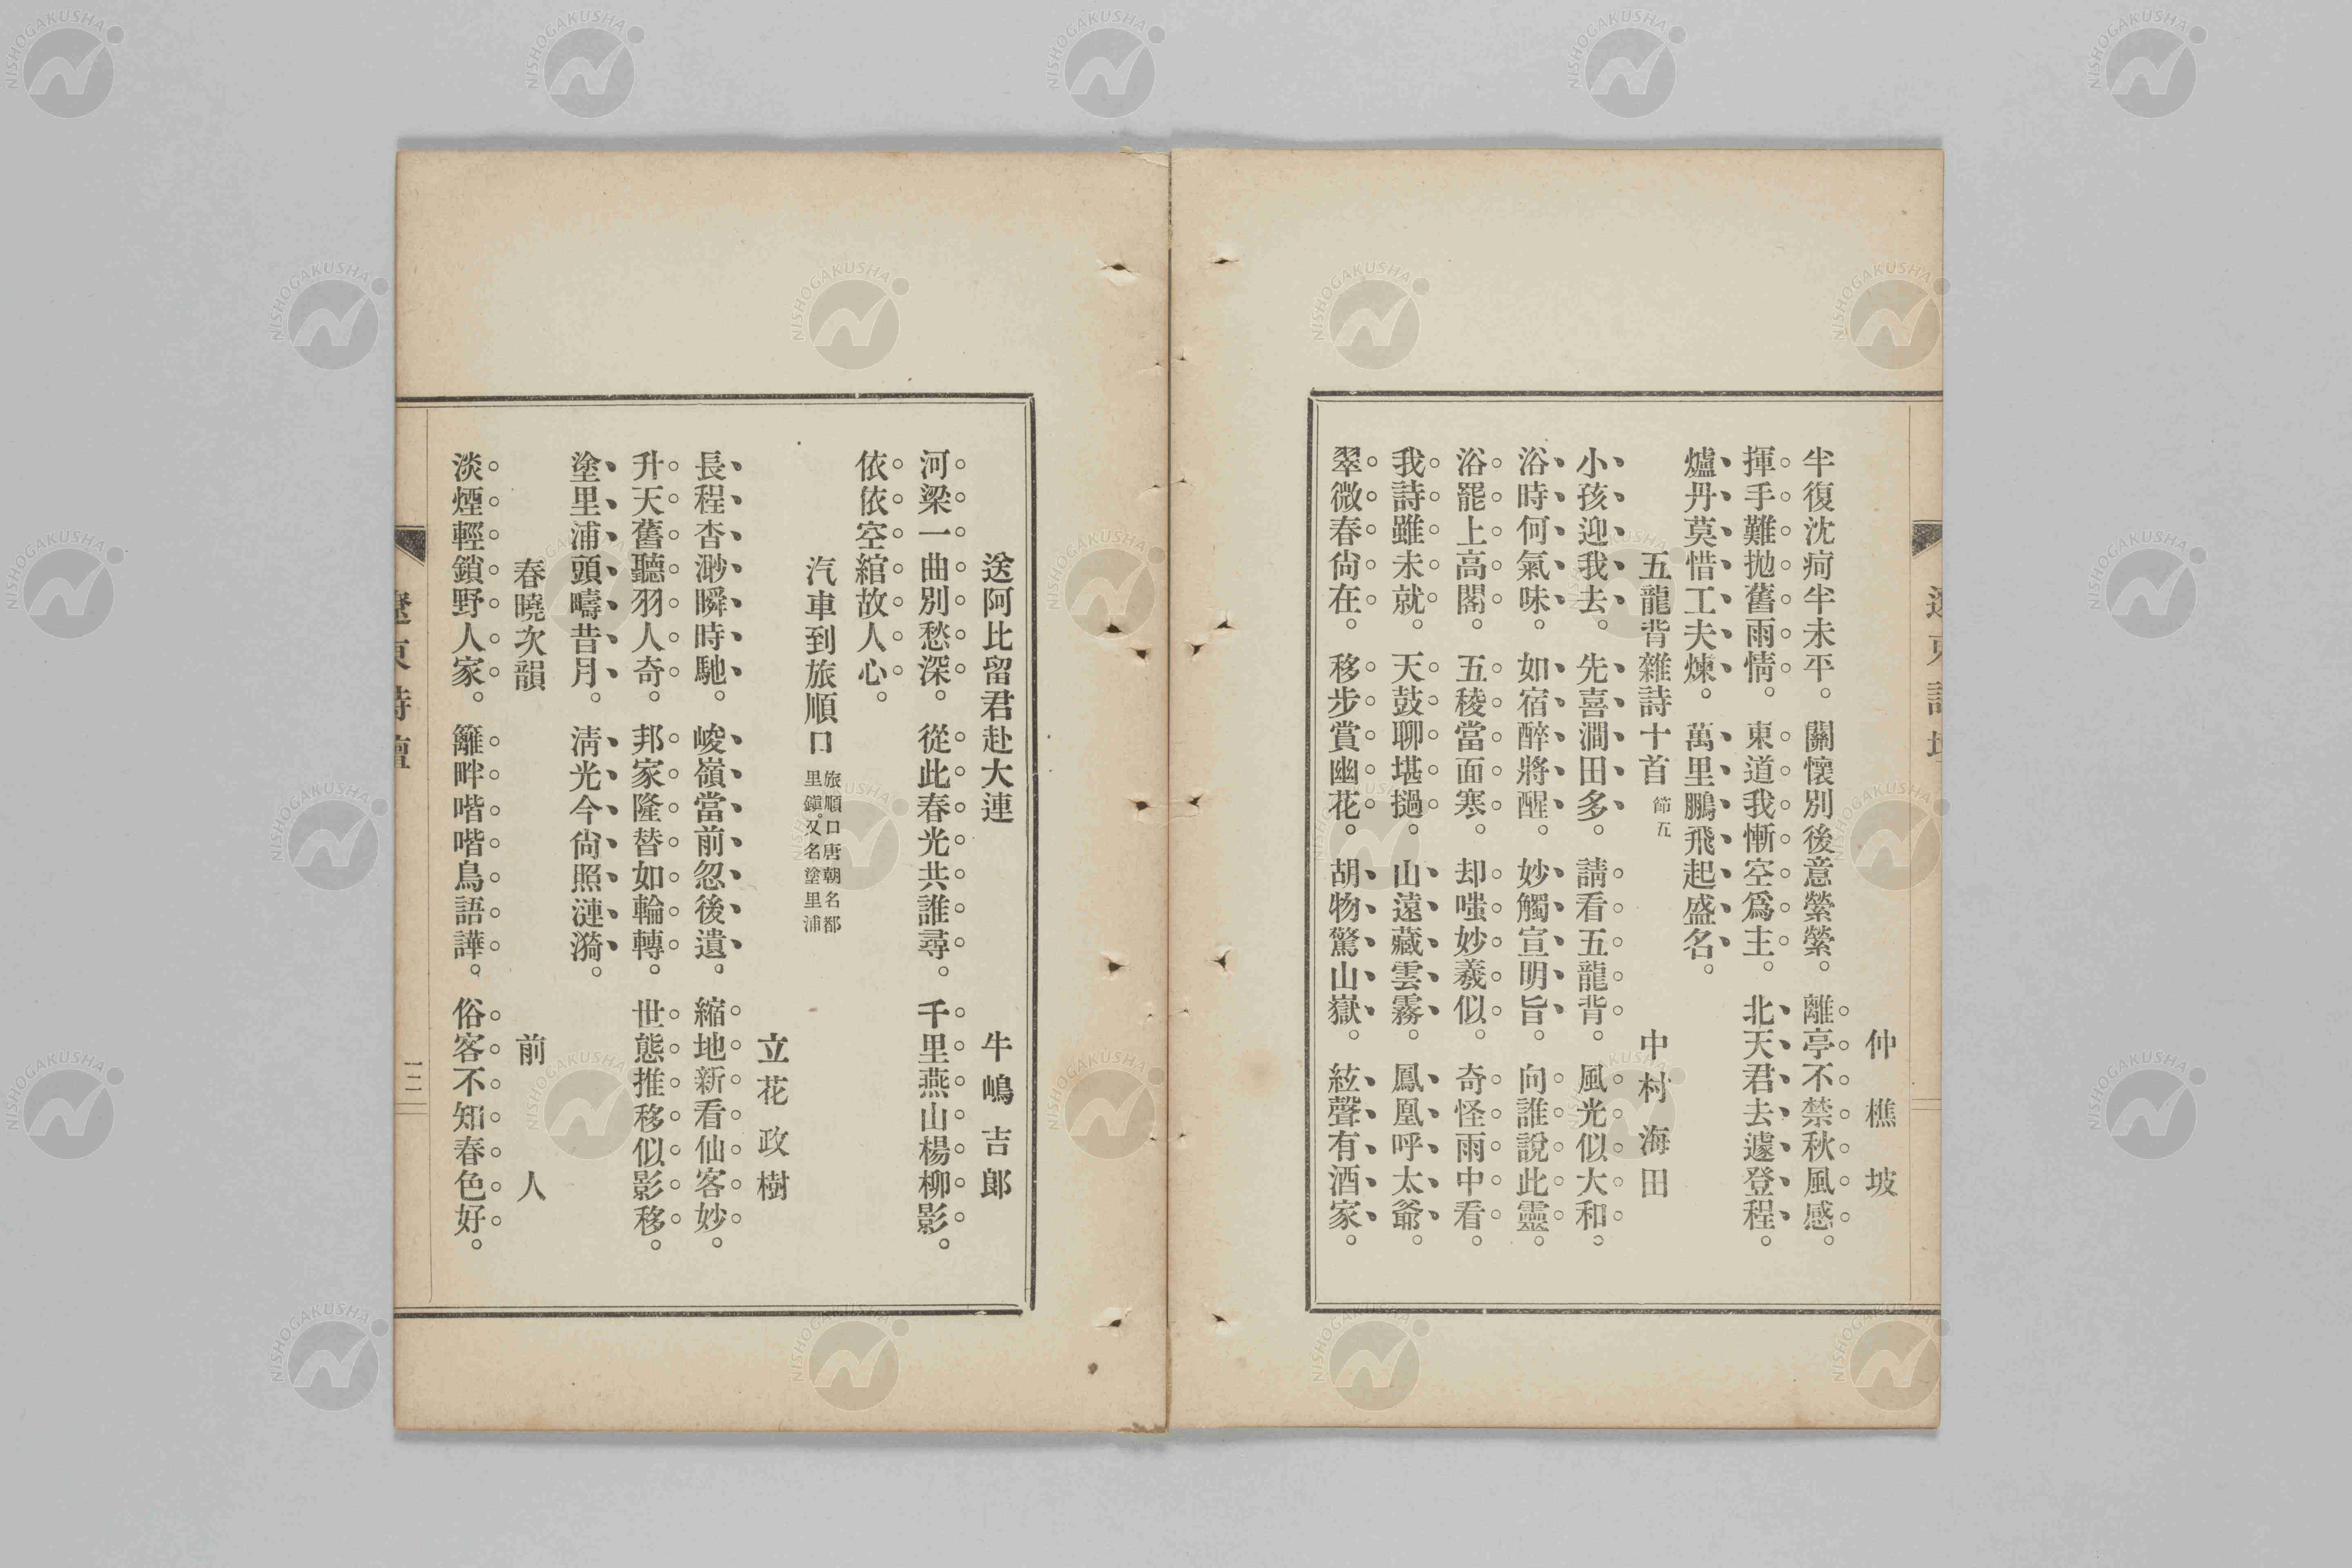 仲樵坡
半復沈疴半未平。關懷別後意縈縈。離亭不禁秋風感。
揮手難拋舊雨情。東道我慚空爲主。北天君去遽登程。
爐丹莫惜工夫煉。萬里鵬飛起盛名。
五龍背雜詩十首 節五 中村海田
小孩迎我去。先喜澗田多。請看五龍背。風光似大和。
浴時何氣味。如宿醉將醒。妙觸宣明旨。向誰說此靈。
浴罷上高閣。五稜當面寒。却嗤妙義似。奇怪雨中看。
我詩雖未就。天鼓聊堪撾。山遠藏雲霧。鳳凰呼太爺。
翠微春尙在。移步賞幽花。胡物驚山嶽。絃聲有酒家。
送阿比留君赴大連 牛嶋吉郎
河梁一曲別愁深。從此春光共誰尋。千里燕山楊柳影。
依依空綰故人心。
汽車到旅順口 旅順口唐朝名都里鎭。又名塗里浦
立花政樹
長程杳渺瞬時馳。峻嶺當前忽後遺。縮地新看仙客妙。
升天舊聽羽人奇。邦家隆替如輪轉。世態推移似影移。
塗里浦頭疇昔月。淸光今尙照漣漪。
春曉次韻 前人
淡煙輕鎖野人家。籬畔喈喈鳥語譁。俗客不知春色好。
遼東詩壇
一二
NISHOGAKUSHA